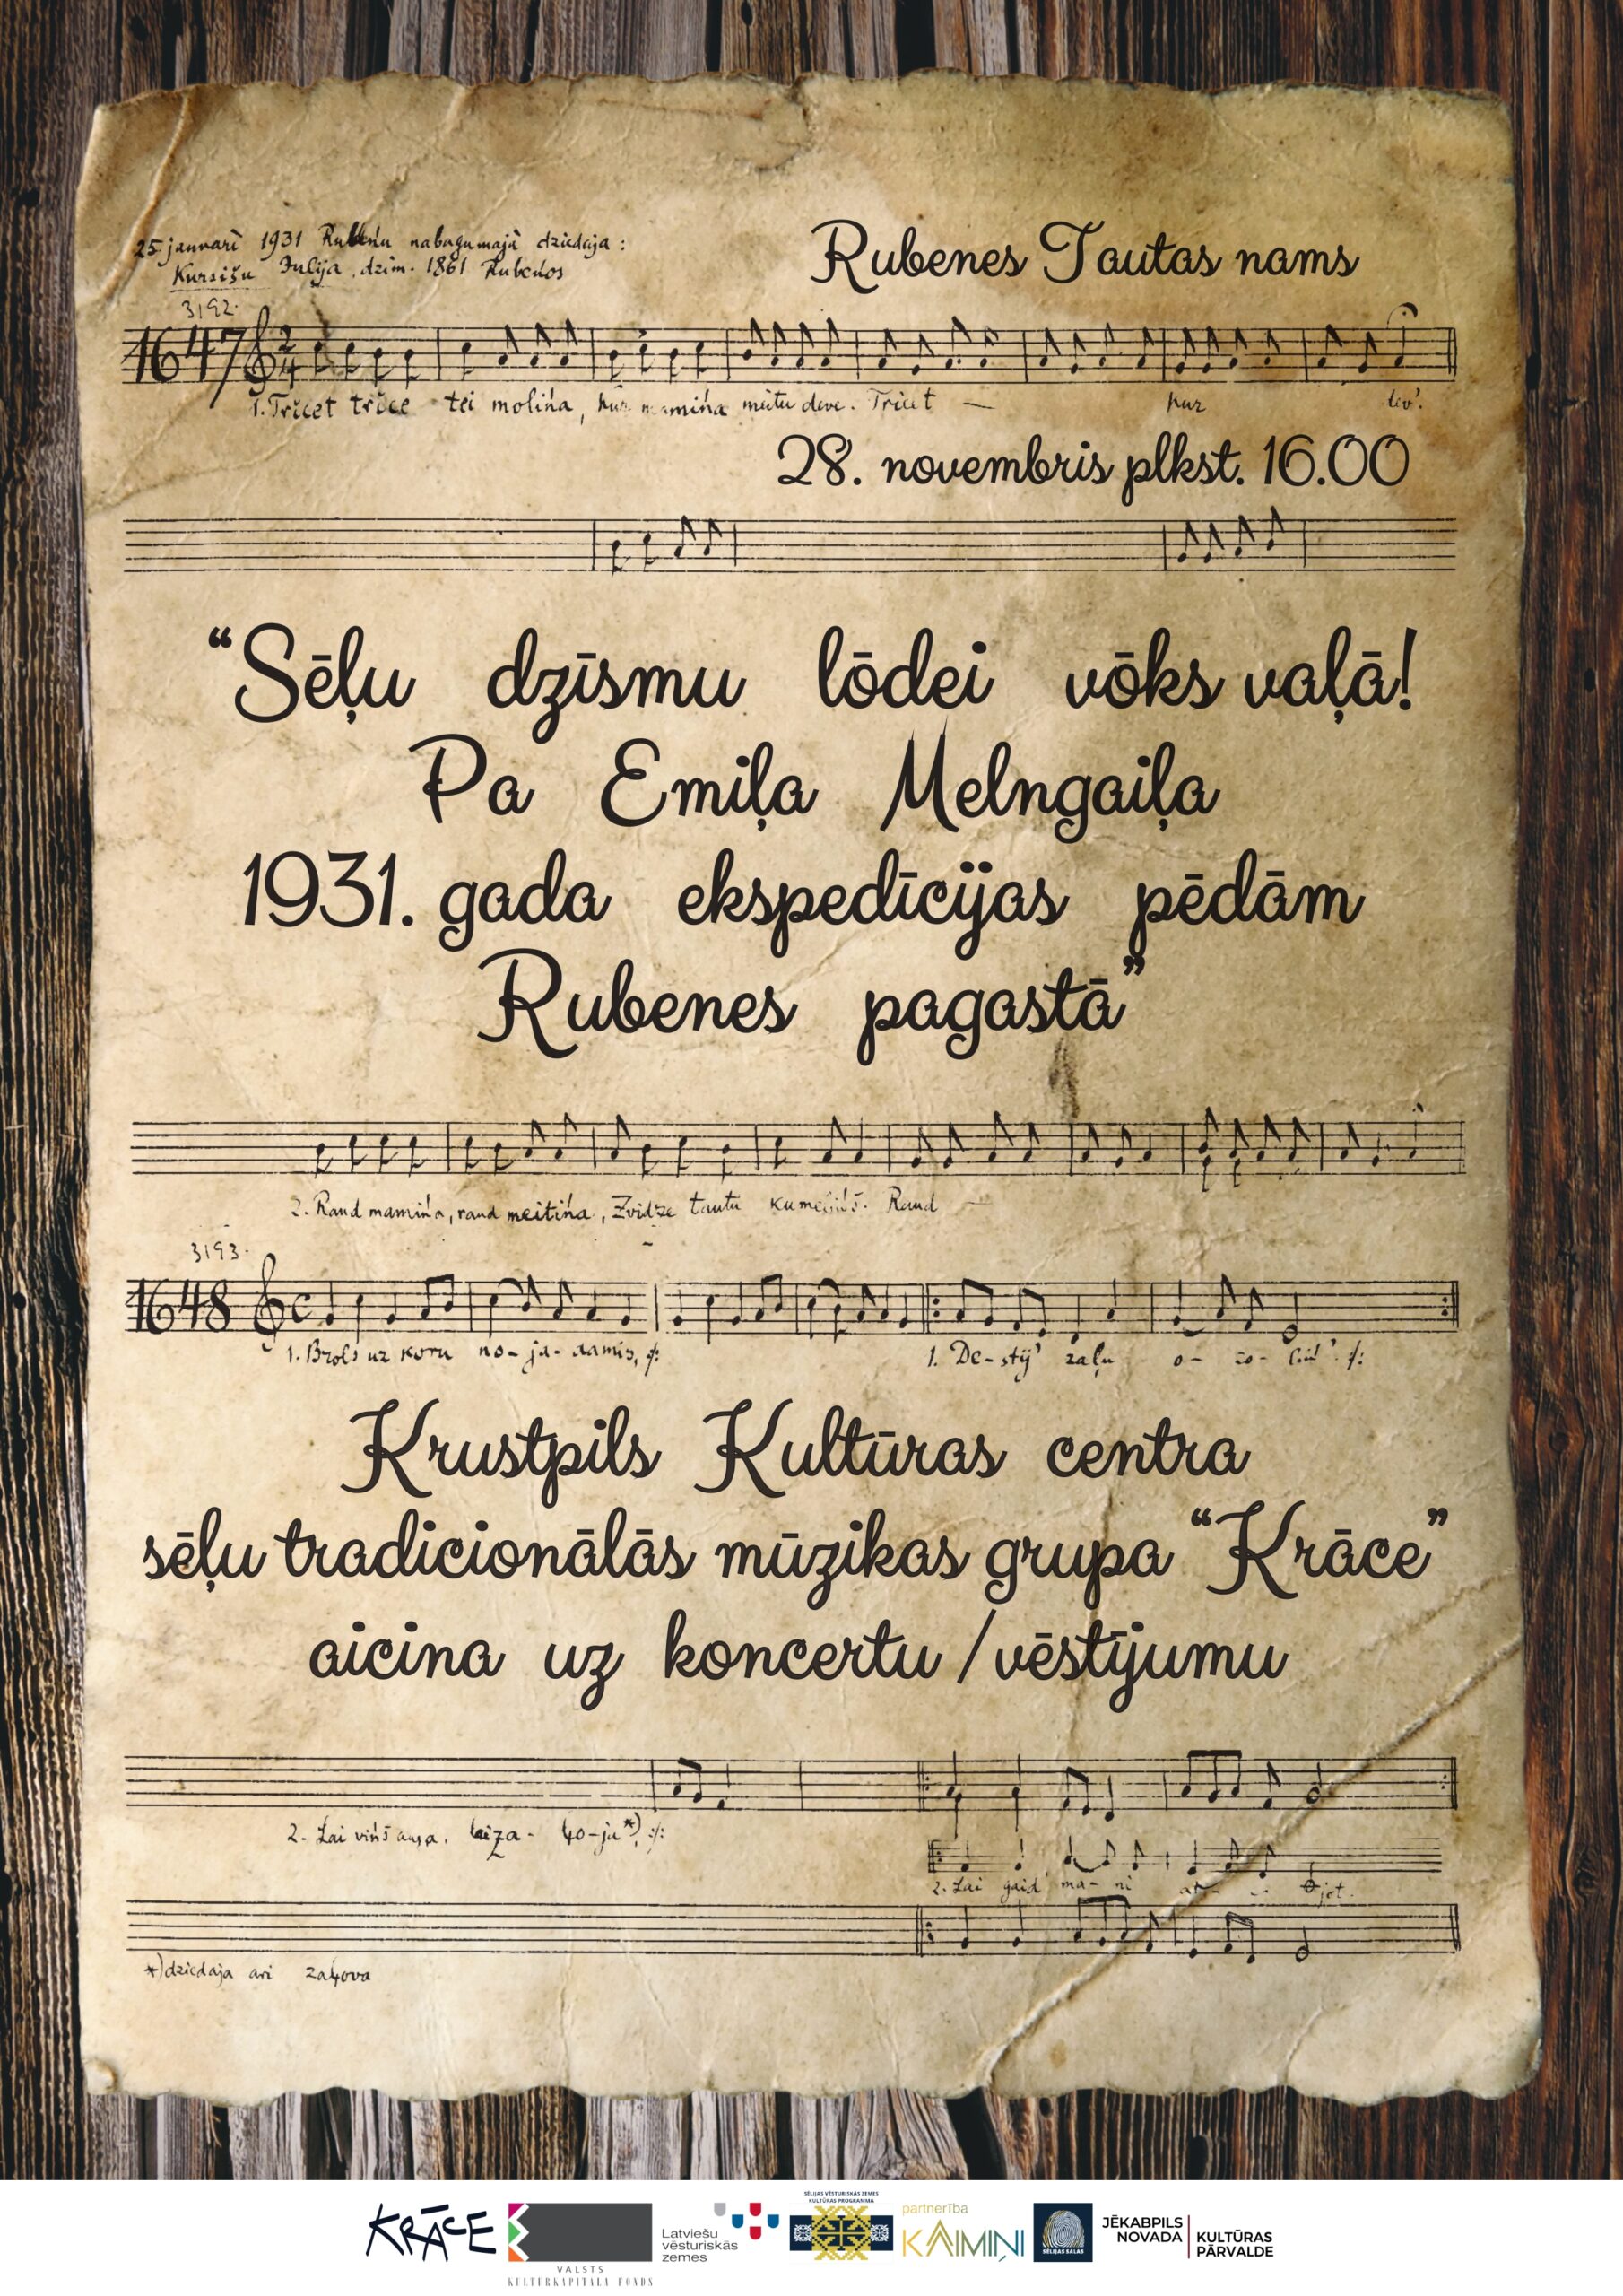 25. janvarī 1931 Rubeņu nabagumajā dziedaja:
Kursišu Julija, dzim. 1861 Rubeņos
Rubenes Tautas nams
3192.
1647
1. Tricet trice tei molińa, kur mamińa meitu deve. Tricet — kur dev'.
28. novembris plkst. 16.00
“Sēļu dzīsmu lōdei vōks vaļā!
Pa Emiļa Melngaiļa
1931. gada ekspedīcijas pēdām
Rubenes pagastā”
2. Raud mamińa, raud meitińa, Zvidze tautu Raud —
3193.
1648
1. Brols uz koru no-ja-damis,
1. De-stij' zaļu o-zo-
Krustpils Kultūras centra
sēļu tradicionālās mūzikas grupa “Krāce”
aicina uz koncertu /vēstījumu
2. Lai vińš
2. Lai gaid ma-ni
*) dziedaja ari
KRĀCE
VALSTS
KULTŪRKAPITĀLA FONDS
Latviešu
vēsturiskās
zemes
SĒLIJAS VĒSTURISKĀS ZEMES
KULTŪRAS PROGRAMMA
partnerība
KAIMIŅI
SĒLIJAS SALAS
JĒKABPILS
NOVADA
KULTŪRAS
PĀRVALDE